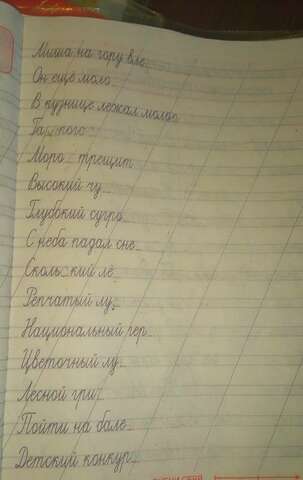 Миша на гору вле..
Он ещё моло..
В кузнице лежал молот
Га.. кого
Моро.. трещит.
Высокий чу..
Глубокий сугро..
С неба падал сне..
Сколь..кий лё..
Репчатый лу..
Национальный гер..
Цветочный лу..
Лесной гри..
Пойти на бале..
Детский конкур..